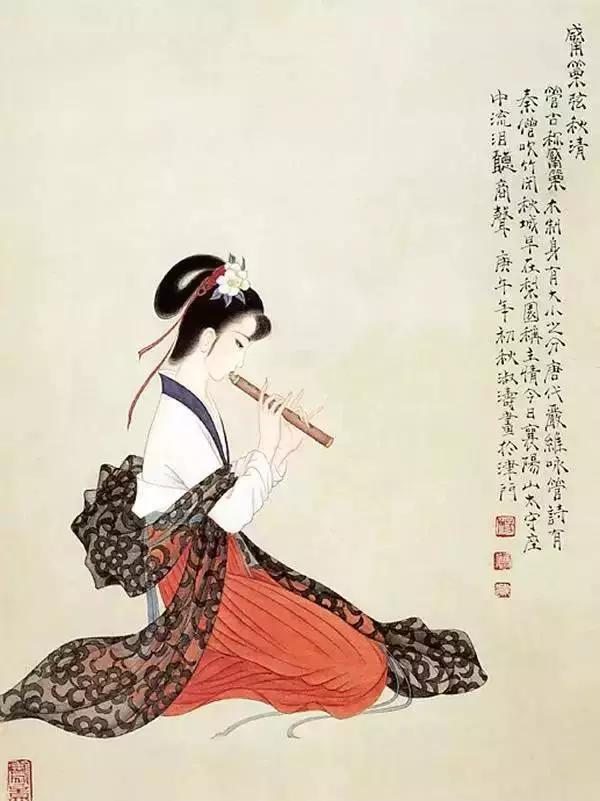 觱篥弦秋清
管古称觱篥木制身有大小之分唐代嚴維咏管詩有
秦僧吹竹闭秋城早在梨園稱主情今日襄陽山太守座
中流泪聽商聲 庚午年初秋淑濤畫於津门